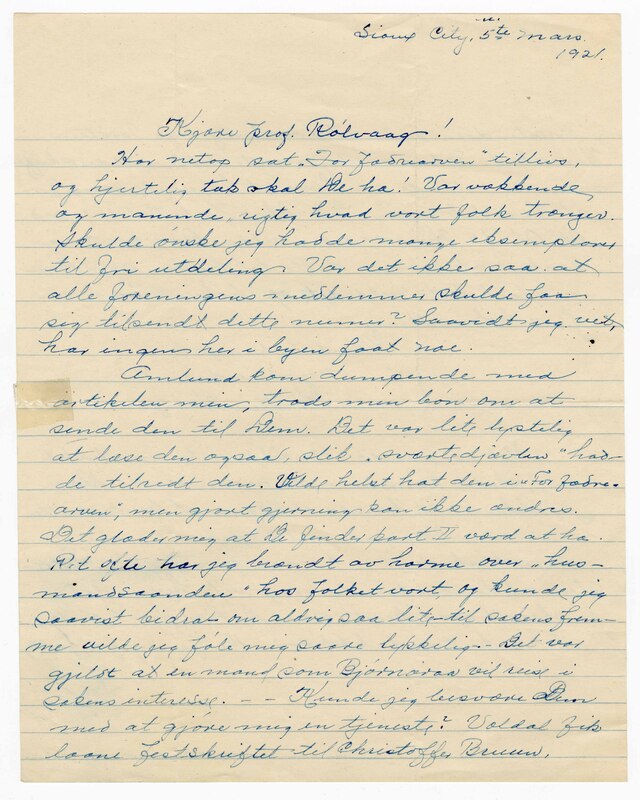 Sioux City, 5te Mars.
1921.
Kjære prof. Rölvaag!
Har netop sat "For fædrearven" tillivs,
og hjertelig tak skal De ha! Var vækkende
og manende, rigtig hvad vort folk trænger.
Skulde ønske jeg hadde mange eksemplarer
til fri utdeling. Var det ikke saa at
alle foreningens medlemmer skulde faa
sig tilsendt dette numer? Saavidt jeg vet,
har ingen her i byen faat noe.
Amlund kom dumpende med
artikelen min, trods min bön om at
sende den til Dem. Det var lite lystelig
at læse den ogsaa, slik "svartedjævlen" had-
de tilredt den. Vilde helst hat den i "For fædre-
arven", men gjort gjerning kan ikke ændres.
Det glæder mig at De finder part II værd at ha.
Ret ofte har jeg brændt av harme over "hus-
mandsaanden" hos folket vort, og kunde jeg
saavist bidra om aldrig saa lite til sakens frem-
me vilde jeg føle meg saare lykkelig. - Det var
gjildt at en mand som Bjørnaraa vil reise i
sakens interesse. - - Kunde jeg besvære Dem
med at gjøre mig en tjeneste? Vældal fik
laane festskriftet til Christoffer Bruun,